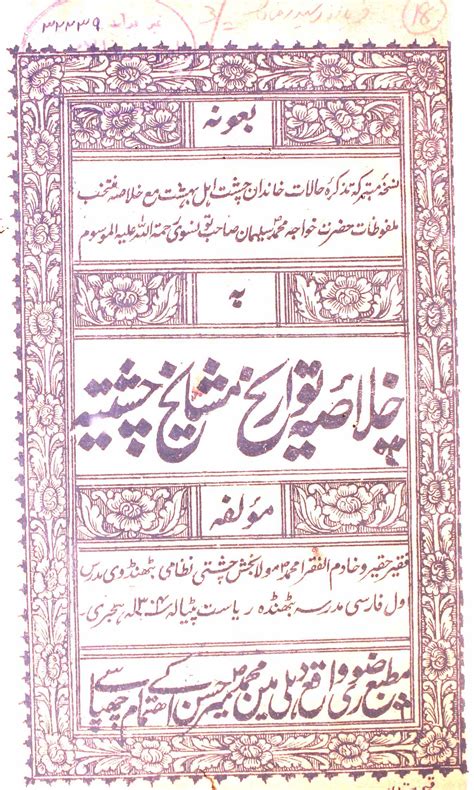 ۳۲۲۳۹
بعونہ
نسخہ متبرکہ تذکرۂ حالات خاندان چشت اہل بہشت مع خلاصہ منتخب
ملفوظات حضرت خواجہ محمد سلیمان صاحب تونسوی رحمۃ اللہ علیہ الموسوم
بہ
خلاصہ تواریخ مشایخ چشتیہ
مؤلفہ
فقیر حقیر و خادم الفقرا احمد مولابخش چشتی نظامی بھٹنڈوی مدرس
اول فارسی مدرسہ بھٹنڈہ ریاست پٹیالہ ۱۳۰۴ہجری۔
مطبع رضوی واقع دہلی مین میر حسن کے اہتمام سے چھپا